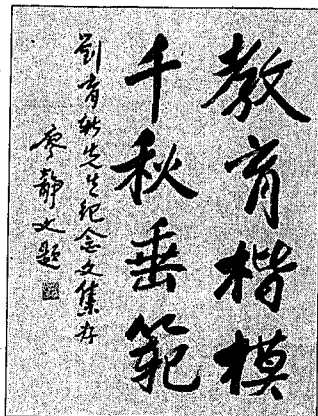 教育楷模
千秋垂範
劉育新先生纪念文集存
廖靜文題